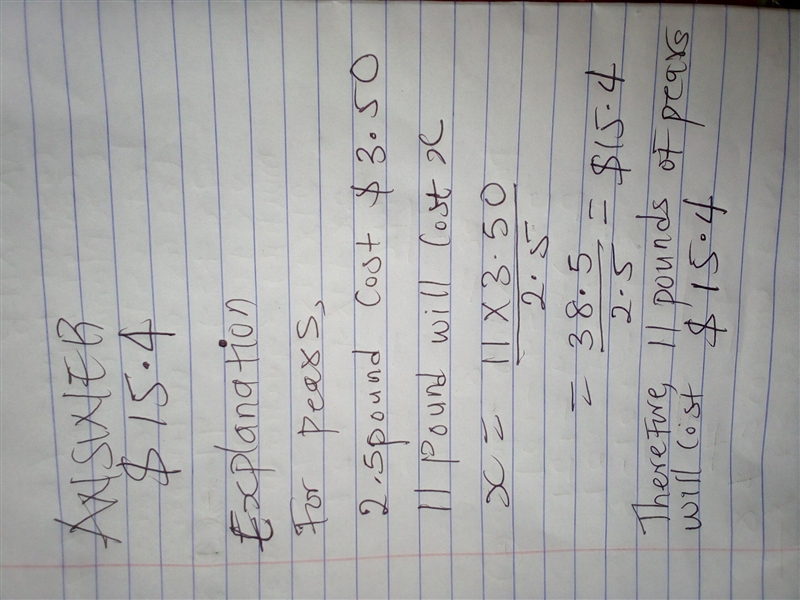 ANSWER
$15.4
Explanation
For pears,
2.5pound Cost $3.50
11 Pound will Cost x
x = 11 x 3.50
2.5
= 38.5 = $15.4
2.5
Therefore, 11 pounds of pears
will Cost $15.4